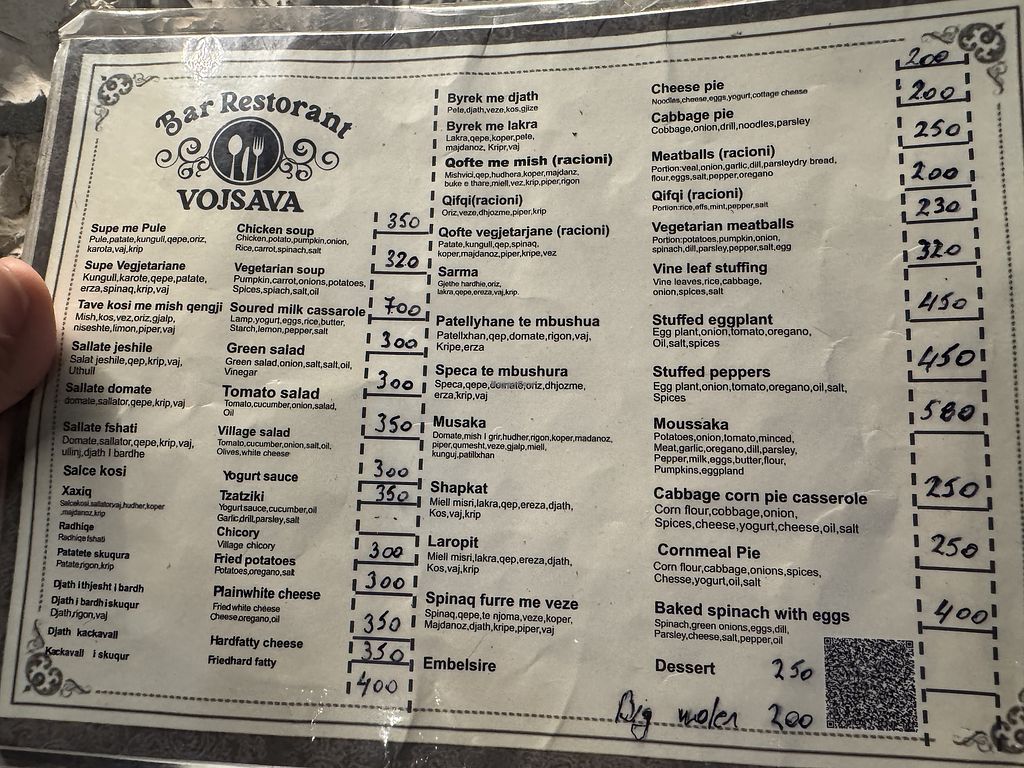 Bar Restorant
VOJSAVA
Supe me Pule
Pule,patate,kungull,qepe,oriz,
karota,vaj,krip
Chicken soup
Chicken,potato,pumpkin,onion,
Rice,carrot,spinach,salt
350
Supe Vegjetariane
Kungull,karote,qepe,patate,
erza,spinaq,krip,vaj
Vegetarian soup
Pumpkin,carrot,onions,potatoes,
Spices,spiach,salt,oil
320
Tave kosi me mish qengji
Mish,kos,vez,oriz,gjalp,
niseshte,limon,piper,vaj
Soured milk cassarole
Lamp,yogurt,eggs,rice,butter,
Starch,lemon,pepper,salt
700
Sallate jeshile
Salat jeshile,qep,krip,vaj,
Uthull
Green salad
Green salad,onion,salt,salt,oil,
Vinegar
300
Sallate domate
domate,sallator,qepe,krip,vaj
Tomato salad
Tomato,cucumber,onion,salad,
Oil
300
Sallate fshati
Domate,sallator,qepe,krip,vaj,
ullinj,djath I bardhe
Village salad
Tomato,cucumber,onion,salt,oil,
Olives,white cheese
350
Salce kosi
Yogurt sauce
300
Xaxiq
Salcekosi,sallatorvaj,hudher,koper
,majdanoz,krip
Tzatziki
Yogurt sauce,cucumber,oil
Garlic,drill,parsley,salt
350
Radhiqe
Radhiqe fshati
Chicory
Village chicory
Patatete skuqura
Patate,rigon,krip
Fried potatoes
Potatoes,oregano,salt
300
Djath i thjesht i bardh
Plainwhite cheese
300
Djath i bardh i skuqur
Djath,rigon,vaj
Fried white cheese
Cheese,oregano,oil
350
Djath kackavall
Hardfatty cheese
350
Kackavall i skuqur
Friedhard fatty
400
Byrek me djath
Pete,djath,veze,kos,gjize
Cheese pie
Noodles,cheese,eggs,yogurt,cottage cheese
200
Byrek me lakra
Lakra,qepe,koper,pete,
majdanoz, Kripr,vaj
Cabbage pie
Cobbage,onion,drill,noodles,parsley
200
Qofte me mish (racioni)
Mishvici,qep,hudhera,koper,majdanz,
buke e thare,miell,vez,krip,piper,rigon
Meatballs (racioni)
Portion:veal,onion,garlic,dill,parsleydry bread,
flour,eggs,salt,pepper,oregano
250
Qifqi(racioni)
Oriz,veze,dhjozme,piper,krip
Qifqi (racioni)
Portion:rice,effs,mint,pepper,salt
200
Qofte vegjetarjane (racioni)
Patate,kungull,qep,spinaq,
koper,majdanoz,piper,kripe,vez
Vegetarian meatballs
Portion:potatoes,pumpkin,onion,
spinach,dill,parsley,pepper,salt,egg
230
Sarma
Gjethe hardhie,oriz,
lakra,qepe,ereza,vaj,krip.
Vine leaf stuffing
Vine leaves,rice,cabbage,
onion,spices,salt
320
Patellyhane te mbushua
Patellxhan,qep,domate,rigon,vaj,
Kripe,erza
Stuffed eggplant
Egg plant,onion,tomato,oregano,
Oil,salt,spices
450
Speca te mbushura
Speca,qepe,domate,oriz,dhjozme,
erza,krip,vaj
Stuffed peppers
Egg plant,onion,tomato,oregano,oil,salt,
Spices
450
Musaka
Domate,mish I grir,hudher,rigon,koper,madanoz,
piper,qumesht,veze,gjalp,miell,
kunguj,patllxhan
Moussaka
Potatoes,onion,tomato,minced,
Meat,garlic,oregano,dill,parsley,
Pepper,milk,eggs,butter,flour,
Pumpkins,eggpland
580
Shapkat
Miell misri,lakra,qep,ereza,djath,
Kos,vaj,krip
Cabbage corn pie casserole
Corn flour,cobbage,onion,
Spices,cheese,yogurt,cheese,oil,salt
250
Laropit
Miell misri,lakra,qep,ereza,djath,
Kos,vaj,krip
Cornmeal Pie
Corn flour,cabbage,onions,spices,
Chesse,yogurt,oil,salt
250
Spinaq furre me veze
Spinaq,qepe,te njoma,veze,koper,
Majdanoz,djath,kripe,piper,vaj
Baked spinach with eggs
Spinach,green onions,eggs,dill,
Parsley,cheese,salt,pepper,oil
400
Embelsire
Dessert 250
Big 200